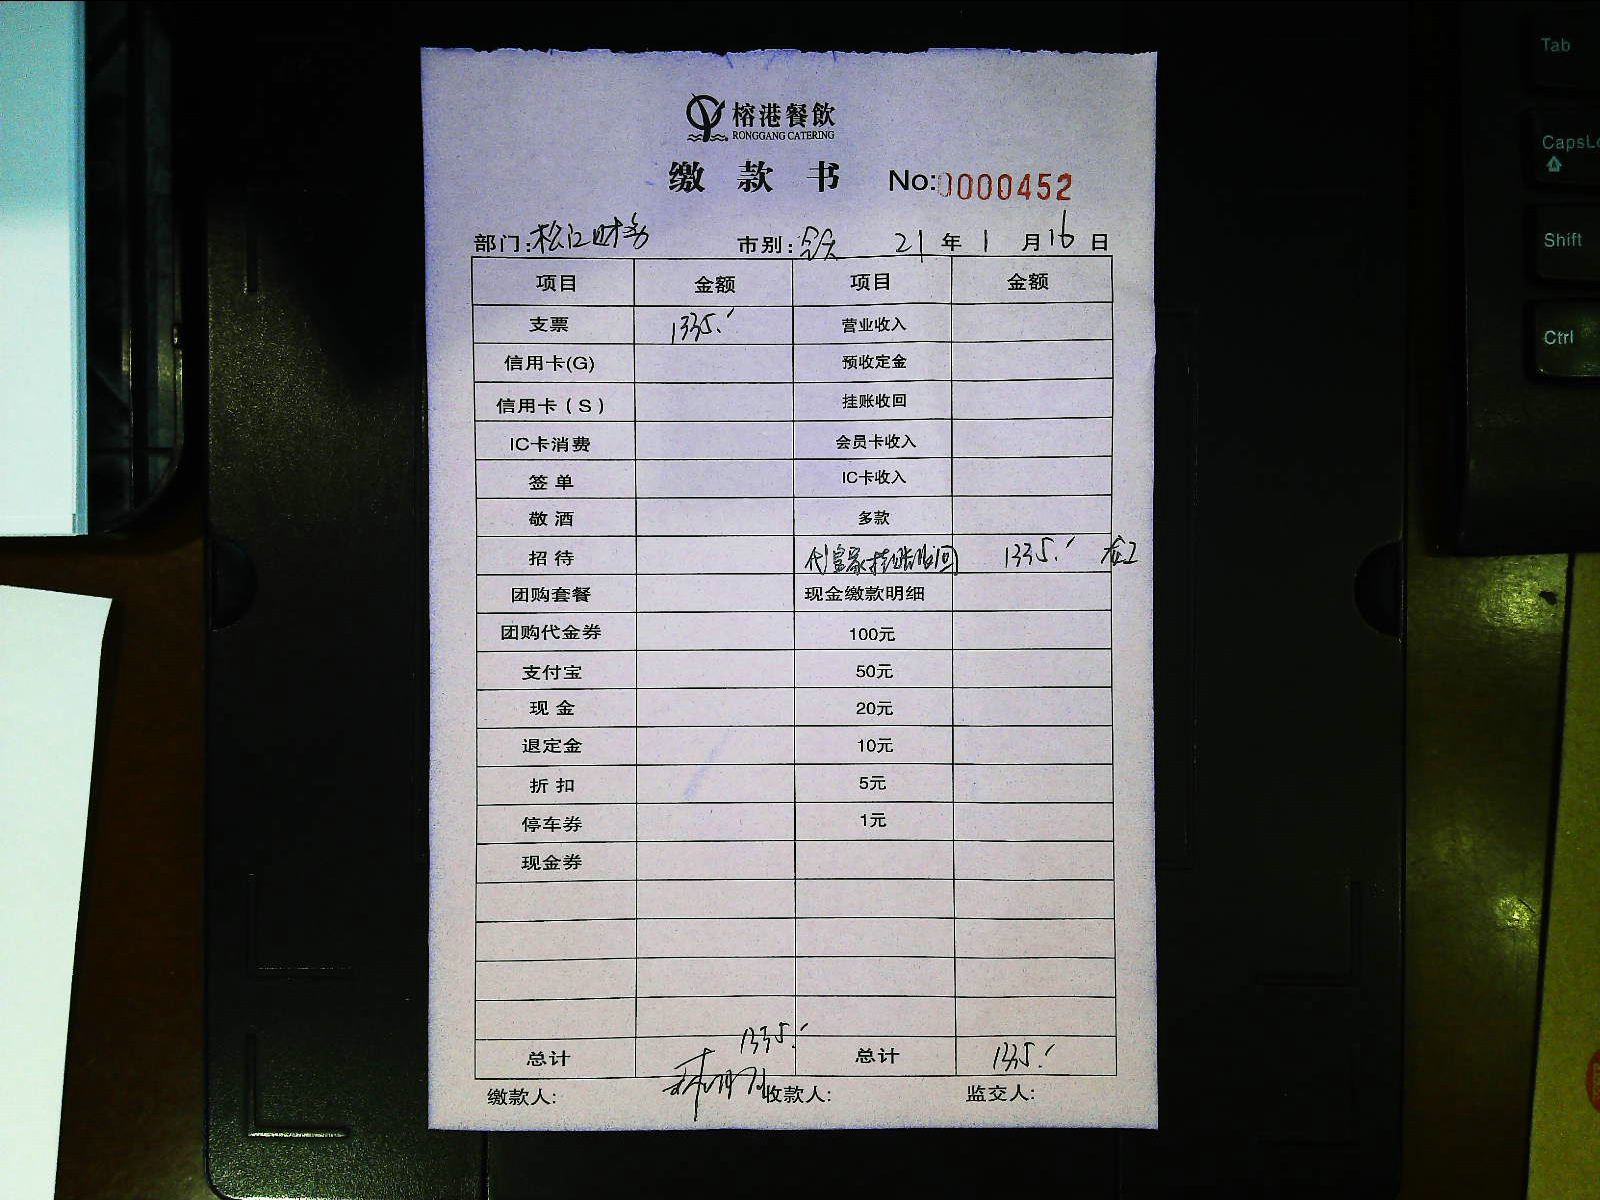 榕港餐飲
RONGGANG CATERING
缴款书 No:0000452
部门:松江财务 市别:全天 21年1月16日
项目 金额 项目 金额
支票 1335.- 营业收入
信用卡(G) 预收定金
信用卡(S) 挂账收回
IC卡消费 会员卡收入
签单 IC卡收入
敬酒 多款
招待 代皇家挂账收回 1335.-
团购套餐 现金缴款明细
团购代金券 100元
支付宝 50元
现金 20元
退定金 10元
折扣 5元
停车券 1元
现金券
总计 1335.- 总计 1335.-
缴款人: 收款人: 监交人:
Tab
CapsLo
Shift
Ctrl